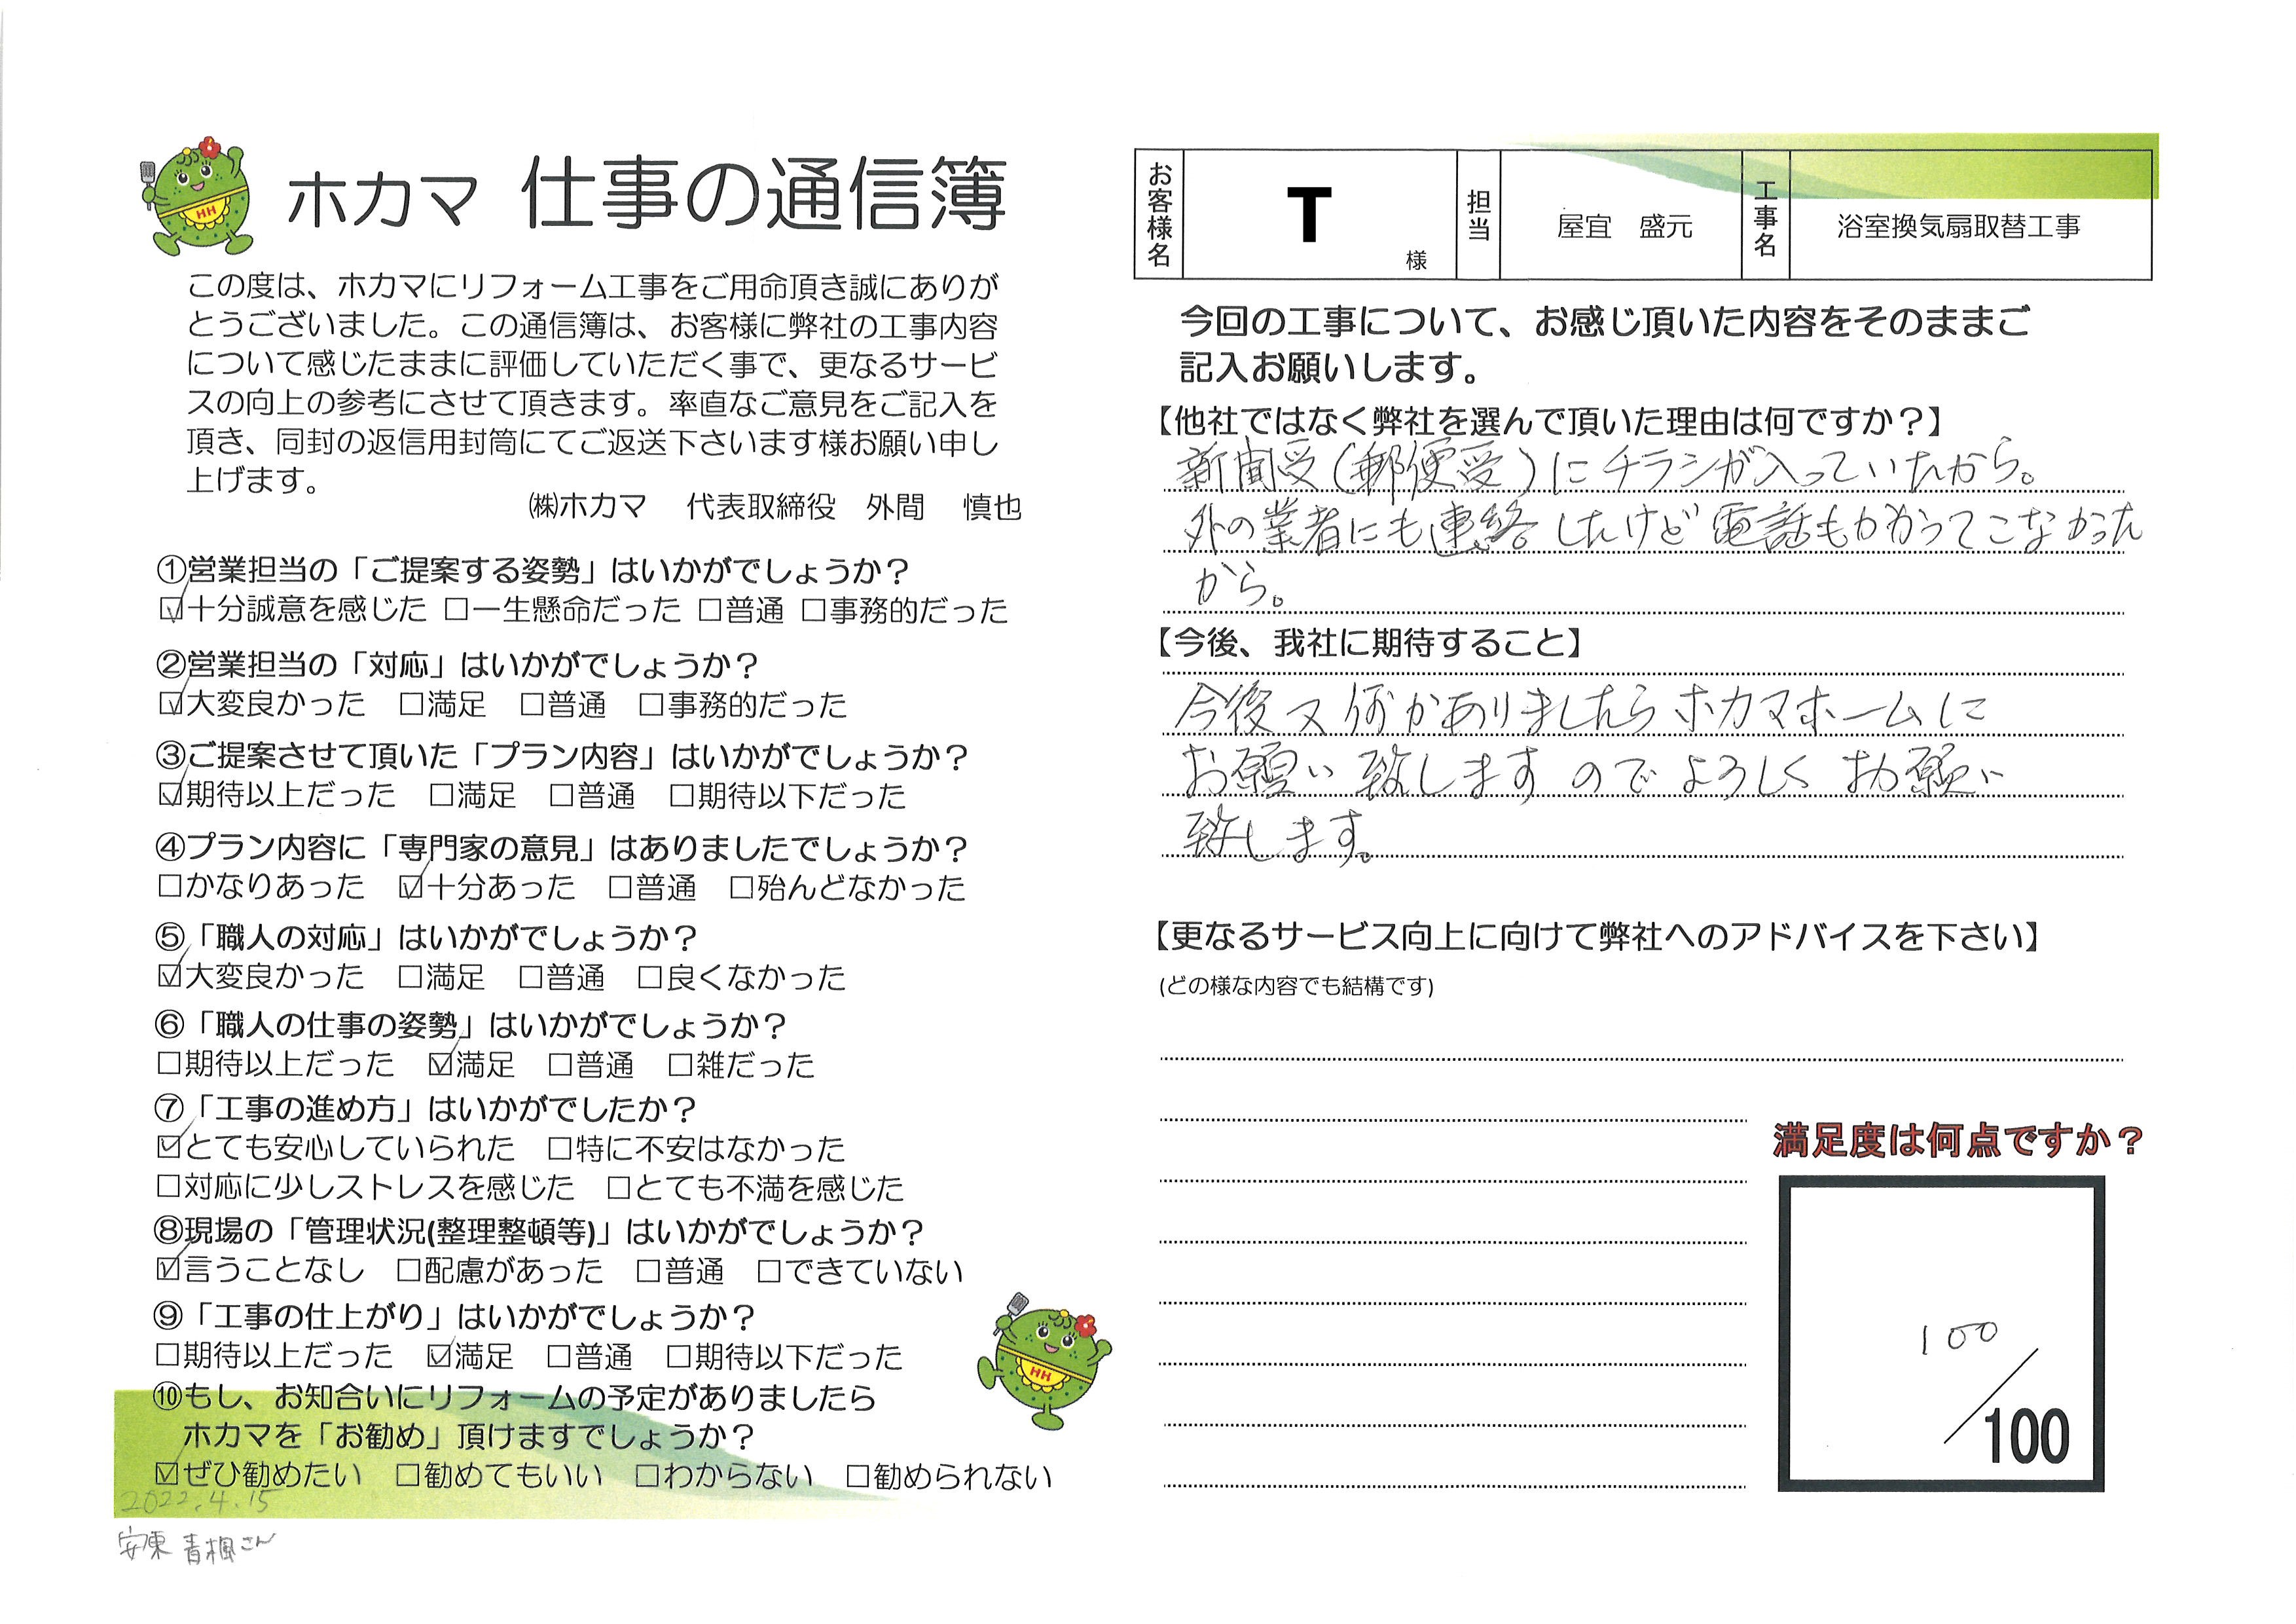 ホカマ 仕事の通信簿
この度は、ホカマにリフォーム工事をご用命頂き誠にありが
とうございました。この通信簿は、お客様に弊社の工事内容
について感じたままに評価していただく事で、更なるサービ
スの向上の参考にさせて頂きます。率直なご意見をご記入を
頂き、同封の返信用封筒にてご返送下さいます様お願い申し
上げます。
㈱ホカマ 代表取締役 外間 慎也
①営業担当の「ご提案する姿勢」はいかがでしょうか？
☑十分誠意を感じた □一生懸命だった □普通 □事務的だった
②営業担当の「対応」はいかがでしょうか？
☑大変良かった □満足 □普通 □事務的だった
③ご提案させて頂いた「プラン内容」はいかがでしょうか？
☑期待以上だった □満足 □普通 □期待以下だった
④プラン内容に「専門家の意見」はありましたでしょうか？
□かなりあった ☑十分あった □普通 □殆んどなかった
⑤「職人の対応」はいかがでしょうか？
☑大変良かった □満足 □普通 □良くなかった
⑥「職人の仕事の姿勢」はいかがでしょうか？
□期待以上だった ☑満足 □普通 □雑だった
⑦「工事の進め方」はいかがでしたか？
☑とても安心していられた □特に不安はなかった
□対応に少しストレスを感じた □とても不満を感じた
⑧現場の「管理状況(整理整頓等)」はいかがでしょうか？
☑言うことなし □配慮があった □普通 □できていない
⑨「工事の仕上がり」はいかがでしょうか？
□期待以上だった ☑満足 □普通 □期待以下だった
⑩もし、お知合いにリフォームの予定がありましたら
ホカマを「お勧め」頂けますでしょうか？
☑ぜひ勧めたい □勧めてもいい □わからない □勧められない
2022.4.15
安東 青楓さん
HH
HH
お客様名 T 様 担当 屋宜 盛元 工事名 浴室換気扇取替工事
今回の工事について、お感じ頂いた内容をそのままご
記入お願いします。
【他社ではなく弊社を選んで頂いた理由は何ですか？】
新聞受(郵便受)にチラシが入っていたから。
外の業者にも連絡したけど電話もかかってこなかった
から。
【今後、我社に期待すること】
今後又何かありましたらホカマホームに
お願い致しますのでよろしくお願い
致します。
【更なるサービス向上に向けて弊社へのアドバイスを下さい】
(どの様な内容でも結構です)
満足度は何点ですか？
100
/100